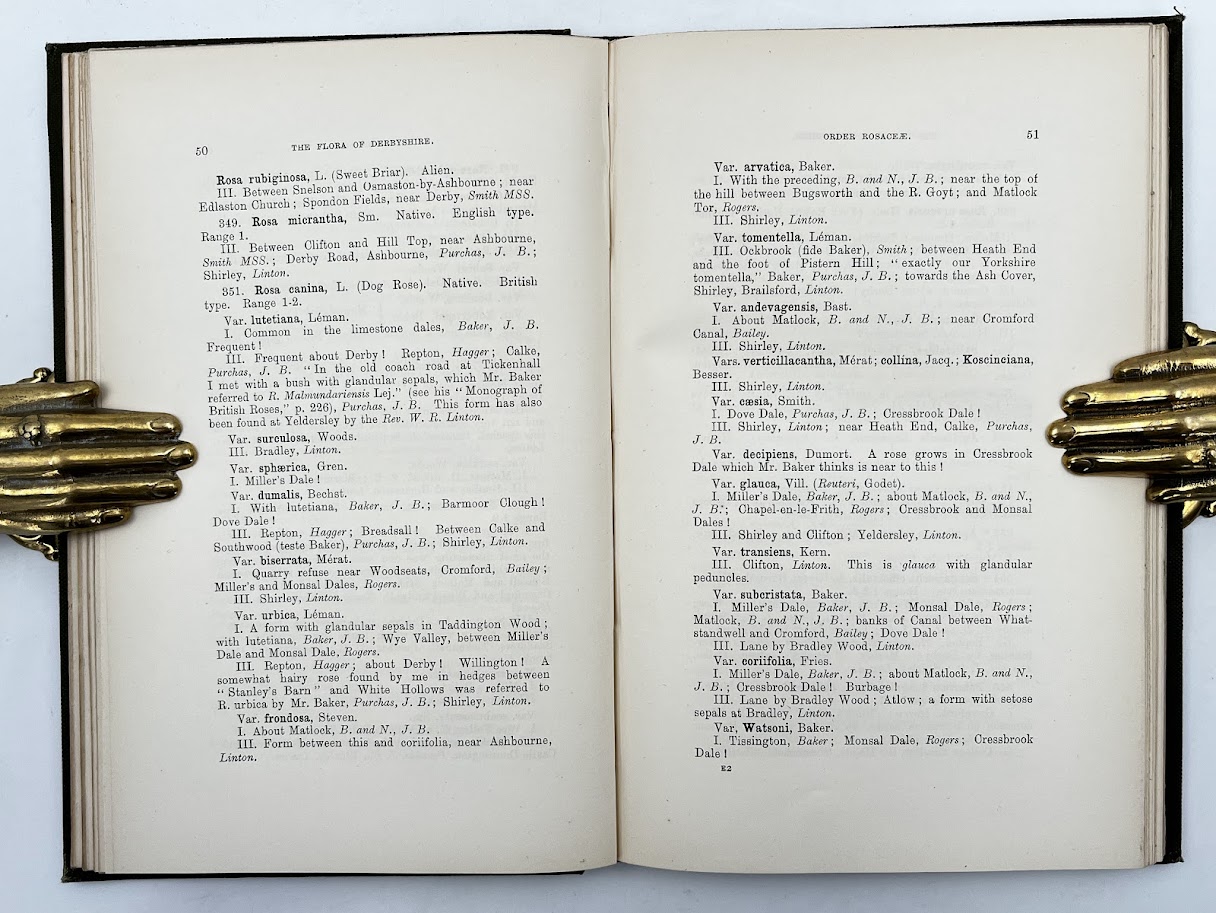 50
THE FLORA OF DERBYSHIRE.
Rosa rubiginosa, L. (Sweet Briar). Alien.
III. Between Snelson and Osmaston-by-Ashbourne; near
Edlaston Church; Spondon Fields, near Derby, Smith MSS.
349. Rosa micrantha, Sm. Native. English type.
Range 1.
III. Between Clifton and Hill Top, near Ashbourne,
Smith MSS.; Derby Road, Ashbourne, Purchas, J. B.;
Shirley, Linton.
351. Rosa canina, L. (Dog Rose). Native. British
type. Range 1-2.
Var. lutetiana, Léman.
I. Common in the limestone dales, Baker, J. B.
Frequent!
III. Frequent about Derby! Repton, Hagger; Calke,
Purchas, J. B. "In the old coach road at Tickenhall
I met with a bush with glandular sepals, which Mr. Baker
referred to R. Malmundariensis Lej." (see his "Monograph of
British Roses," p. 226), Purchas, J. B. This form has also
been found at Yeldersley by the Rev. W. R. Linton.
Var. surculosa, Woods.
III. Bradley, Linton.
Var. sphærica, Gren.
I. Miller's Dale!
Var. dumalis, Bechst.
I. With lutetiana, Baker, J. B.; Barmoor Clough!
Dove Dale!
III. Repton, Hagger; Breadsall! Between Calke and
Southwood (teste Baker), Purchas, J. B.; Shirley, Linton.
Var. biserrata, Mérat.
I. Quarry refuse near Woodseats, Cromford, Bailey;
Miller's and Monsal Dales, Rogers.
III. Shirley, Linton.
Var. urbica, Léman.
I. A form with glandular sepals in Taddington Wood;
with lutetiana, Baker, J. B.; Wye Valley, between Miller's
Dale and Monsal Dale, Rogers.
III. Repton, Hagger; about Derby! Willington! A
somewhat hairy rose found by me in hedges between
"Stanley's Barn" and White Hollows was referred to
R. urbica by Mr. Baker, Purchas, J. B.; Shirley, Linton.
Var. frondosa, Steven.
I. About Matlock, B. and N., J. B.
III. Form between this and coriifolia, near Ashbourne,
Linton.
ORDER ROSACEÆ.
51
Var. arvatica, Baker.
I. With the preceding, B. and N., J. B.; near the top of
the hill between Bugsworth and the R. Goyt; and Matlock
Tor, Rogers.
III. Shirley, Linton.
Var. tomentella, Léman.
III. Ockbrook (fide Baker), Smith; between Heath End
and the foot of Pistern Hill; "exactly our Yorkshire
tomentella," Baker, Purchas, J. B.; towards the Ash Cover,
Shirley, Brailsford, Linton.
Var. andevagensis, Bast.
I. About Matlock, B. and N., J. B.; near Cromford
Canal, Bailey.
III. Shirley, Linton.
Vars. verticillacantha, Mérat; collina, Jacq.; Koscinciana,
Besser.
III. Shirley, Linton.
Var. cæsia, Smith.
I. Dove Dale, Purchas, J. B.; Cressbrook Dale!
III. Shirley, Linton; near Heath End, Calke, Purchas,
J. B.
Var. decipiens, Dumort. A rose grows in Cressbrook
Dale which Mr. Baker thinks is near to this!
Var. glauca, Vill. (Reuteri, Godet).
I. Miller's Dale, Baker, J. B.; about Matlock, B. and N.,
J. B.; Chapel-en-le-Frith, Rogers; Cressbrook and Monsal
Dales!
III. Shirley and Clifton; Yeldersley, Linton.
Var. transiens, Kern.
III. Clifton, Linton. This is glauca with glandular
peduncles.
Var. subcristata, Baker.
I. Miller's Dale, Baker, J. B.; Monsal Dale, Rogers;
Matlock, B. and N., J. B.; banks of Canal between What-
standwell and Cromford, Bailey; Dove Dale!
III. Lane by Bradley Wood, Linton.
Var. coriifolia, Fries.
I. Miller's Dale, Baker, J. B.; about Matlock, B. and N.,
J. B.; Cressbrook Dale! Burbage!
III. Lane by Bradley Wood; Atlow; a form with setose
sepals at Bradley, Linton.
Var, Watsoni, Baker.
I. Tissington, Baker; Monsal Dale, Rogers; Cressbrook
Dale!
E2